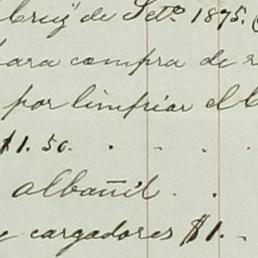 Cruz" de Set.º 1875. (
para compra de
por limpiar el
$1.50. . . .
albañil . .
cargadores $1. -